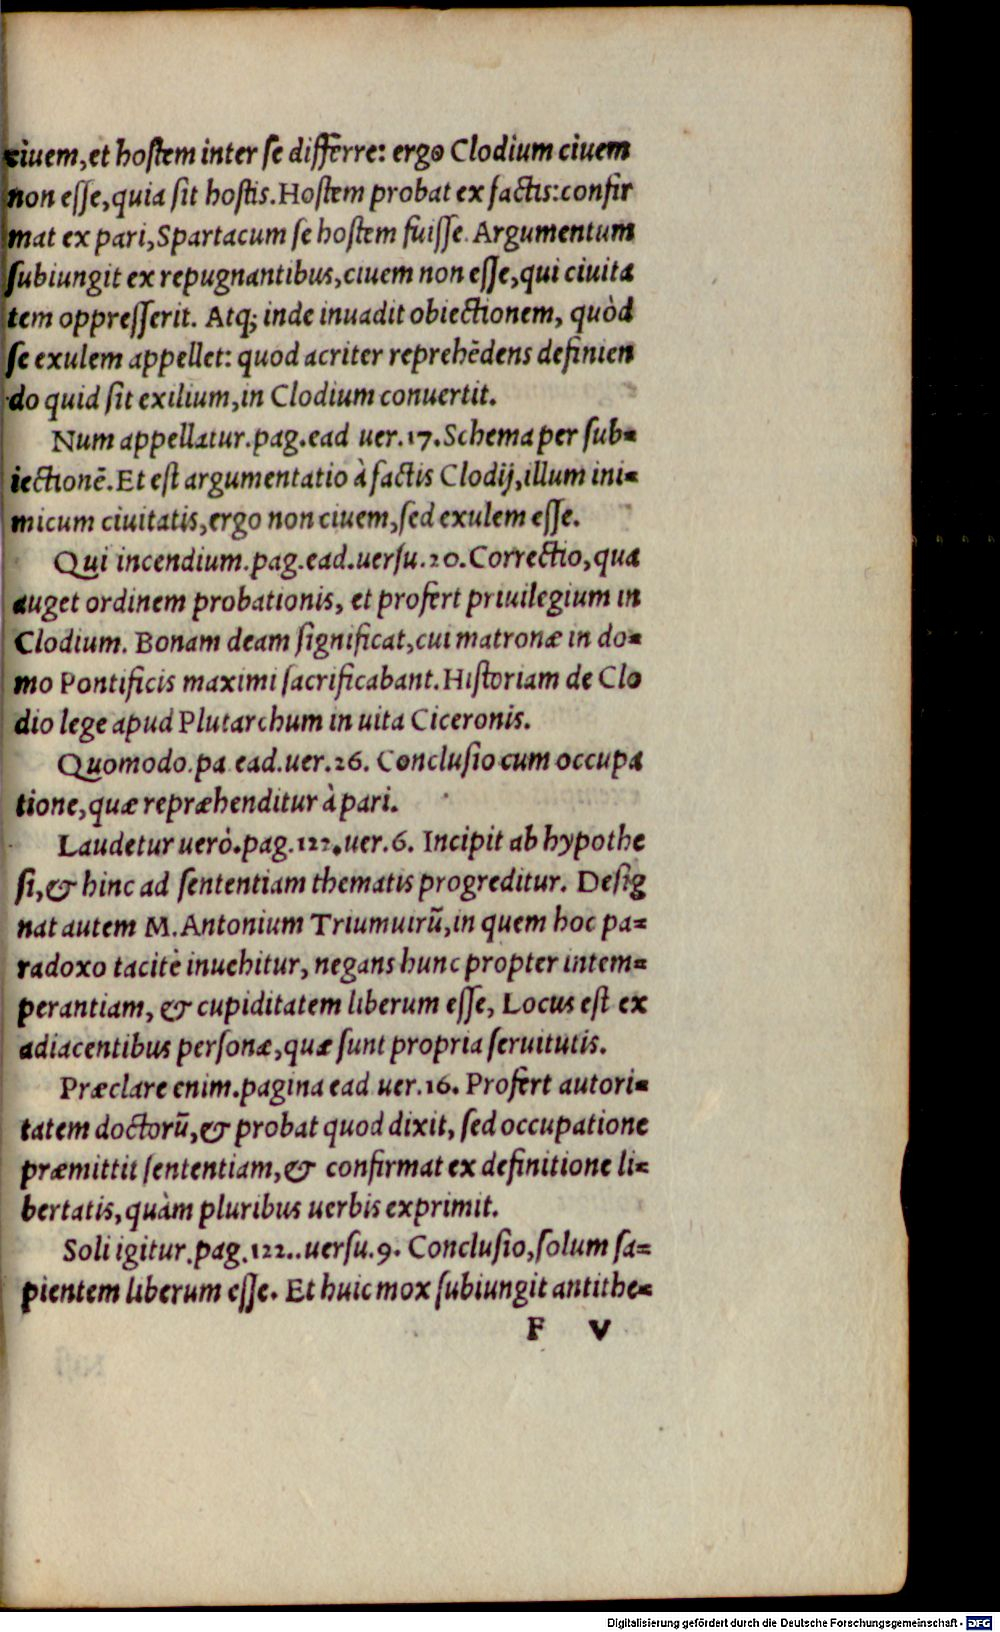 ciuem, et hostem inter se differre: ergo Clodium ciuem
non esse, quia sit hostis. Hostem probat ex factis: confir
mat ex pari, Spartacum se hostem fuisse. Argumentum
subiungit ex repugnantibus, ciuem non esse, qui ciuita
tem oppresserit. Atq; inde inuadit obiectionem, quòd
se exulem appellet: quod acriter reprehēdens definien
do quid sit exilium, in Clodium conuertit.
Num appellatur. pag. ead uer. 17. Schema per sub-
iectionē. Et est argumentatio à factis Clodij, illum ini-
micum ciuitatis, ergo non ciuem, sed exulem esse.
Qui incendium. pag. ead. uersu. 20. Correctio, qua
auget ordinem probationis, et profert priuilegium in
Clodium. Bonam deam significat, cui matronæ in do-
mo Pontificis maximi sacrificabant. Historiam de Clo
dio lege apud Plutarchum in uita Ciceronis.
Quomodo. pa ead. uer. 26. Conclusio cum occupa
tione, quæ repræhenditur à pari.
Laudetur uerò. pag. 122. uer. 6. Incipit ab hypothe
si, & hinc ad sententiam thematis progreditur. Desig
nat autem M. Antonium Triumuirū, in quem hoc pa-
radoxo tacitè inuehitur, negans hunc propter intem-
perantiam, & cupiditatem liberum esse, Locus est ex
adiacentibus personæ, quæ sunt propria seruitutis.
Præclare enim. pagina ead uer. 16. Profert autori-
tatem doctorū, & probat quod dixit, sed occupatione
præmittit sententiam, & confirmat ex definitione li-
bertatis, quàm pluribus uerbis exprimit.
Soli igitur. pag. 122.. uersu. 9. Conclusio, solum sa-
pientem liberum esse. Et huic mox subiungit antithe-
F V
Digitalisierung gefördert durch die Deutsche Forschungsgemeinschaft - DFG